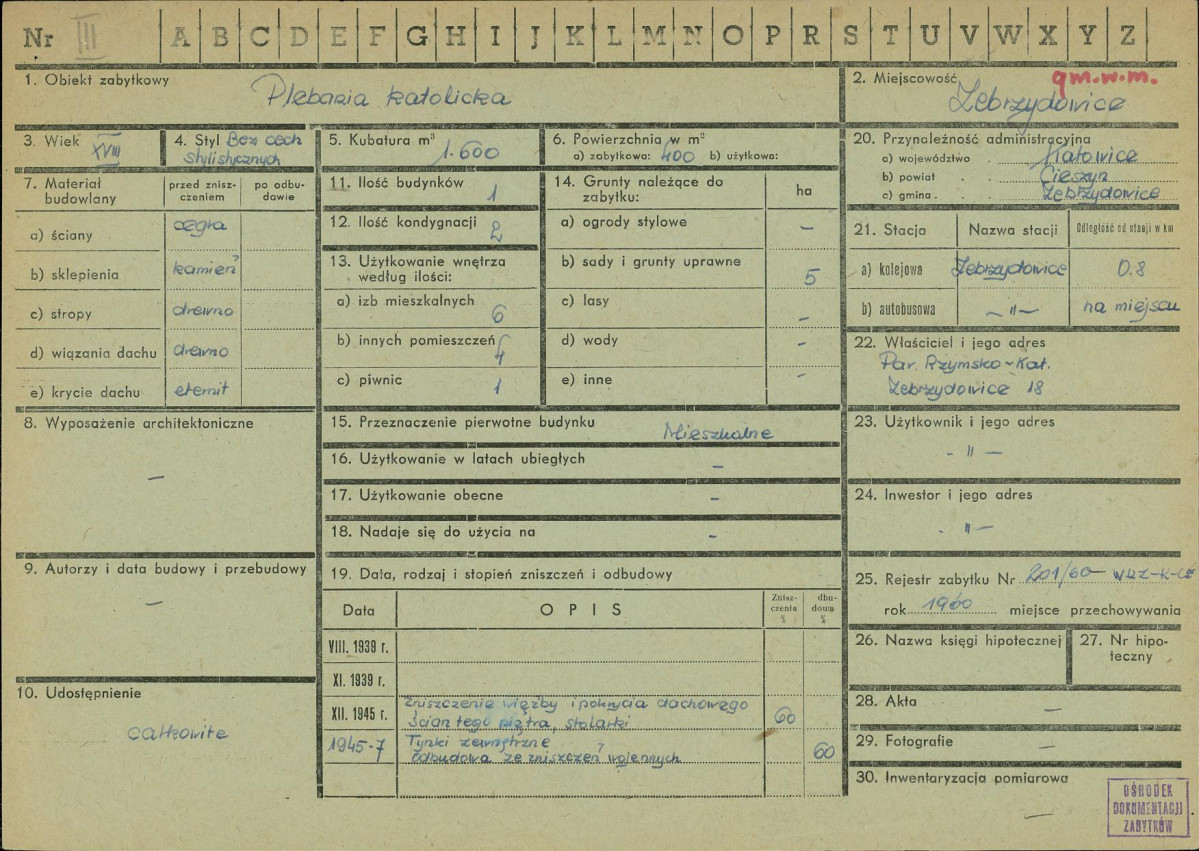 Nr III A B C D E F G H I J K L M N O P R S T U V W X Y Z
1. Obiekt zabytkowy
Plebania katolicka
2. Miejscowość
gm.w.m.
Zebrzydowice
3. Wiek XVIII
4. Styl Bez cech
stylistycznych
5. Kubatura m³
1.600
6. Powierzchnia w m²
a) zabytkowa: 400 b) użytkowa:
20. Przynależność administracyjna
a) województwo . Katowice
b) powiat . . Cieszyn
c) gmina . . . Zebrzydowice
7. Materiał
budowlany
przed znisz-
czeniem
po odbu-
dowie
a) ściany cegła
b) sklepienia kamień
c) stropy drewno
d) wiązania dachu drewno
e) krycie dachu eternit
11. Ilość budynków 1
12. Ilość kondygnacji 2
13. Użytkowanie wnętrza
według ilości:
a) izb mieszkalnych 6
b) innych pomieszczeń 4
c) piwnic 1
14. Grunty należące do
zabytku:
ha
a) ogrody stylowe –
b) sady i grunty uprawne 5
c) lasy –
d) wody –
e) inne –
21. Stacja Nazwa stacji Odległość od stacji w km
a) kolejowa Zebrzydowice 0.8
b) autobusowa –"– na miejscu
22. Właściciel i jego adres
Par. Rzymsko-Kat.
Zebrzydowice 18
8. Wyposażenie architektoniczne
–
15. Przeznaczenie pierwotne budynku Mieszkalne
16. Użytkowanie w latach ubiegłych –
17. Użytkowanie obecne –
18. Nadaje się do użycia na –
23. Użytkownik i jego adres
- " –
24. Inwestor i jego adres
- " –
9. Autorzy i data budowy i przebudowy
–
19. Data, rodzaj i stopień zniszczeń i odbudowy
Data OPIS
Znisz-
czenia
%
dbu-
doum
%
VIII. 1939 r.
XI. 1939 r.
XII. 1945 r. Zniszczenie więźby i pokrycia dachowego
ścian tego piętra, stolarki 60
1945-7 Tynki zewnętrzne
odbudowa ze zniszczeń wojennych 60
25. Rejestr zabytku Nr 201/60
rok 1960 miejsce przechowywania
26. Nazwa księgi hipotecznej
27. Nr hipo-
teczny
10. Udostępnienie
całkowite
28. Akta –
29. Fotografie –
30. Inwentaryzacja pomiarowa
–
OŚRODEK
DOKUMENTACJI
ZABYTKÓW